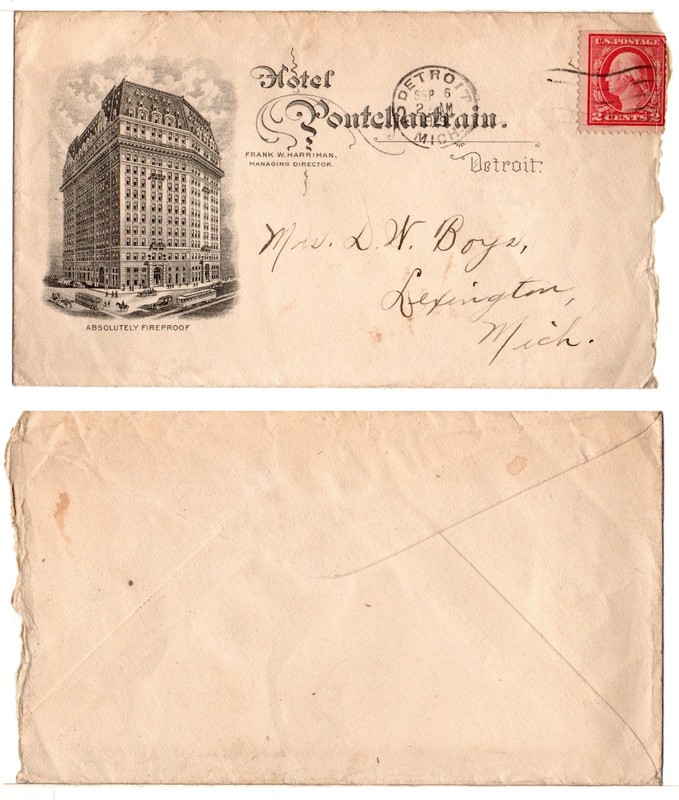 Hotel
Pontchartrain.
FRANK W. HARRIMAN,
MANAGING DIRECTOR.
Detroit.
DETROIT
SEP 6
MICH
U.S. POSTAGE
2 CENTS 2
Mrs. D. W. Boys,
Lexington,
Mich.
ABSOLUTELY FIREPROOF